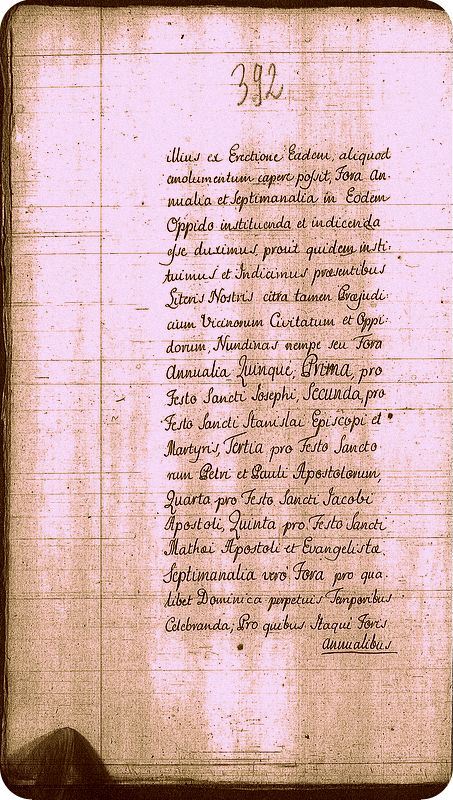 392
illius ex Erectione Eadem, aliquod
emolumentum capere possit, Fora An-
nualia et Septimanalia in Eodem
Oppido instituenda et indicenda
esse duximus, prout quidem insti-
tuimus et Indicimus præsentibus
Literis Nostris citra tamen Præjudi-
cium Vicinorum Civitatum et Oppi-
dorum, Nundinas nempe seu Fora
Annualia Quinque, Prima, pro
Festo Sancti Josephi, Secunda, pro
Festo Sancti Stanislai Episcopi et
Martyris, Tertia pro Festo Sancto
rum Petri et Pauli Apostolorum,
Quarta pro Festo Sancti Jacobi
Apostoli, Quinta pro Festo Sancti
Mathæi Apostoli et Evangelistæ.
Septimanalia verò Fora pro qua-
libet Dominica perpetuis Temporibus
Celebranda; Pro quibus Itaqué Foris
Annualibus